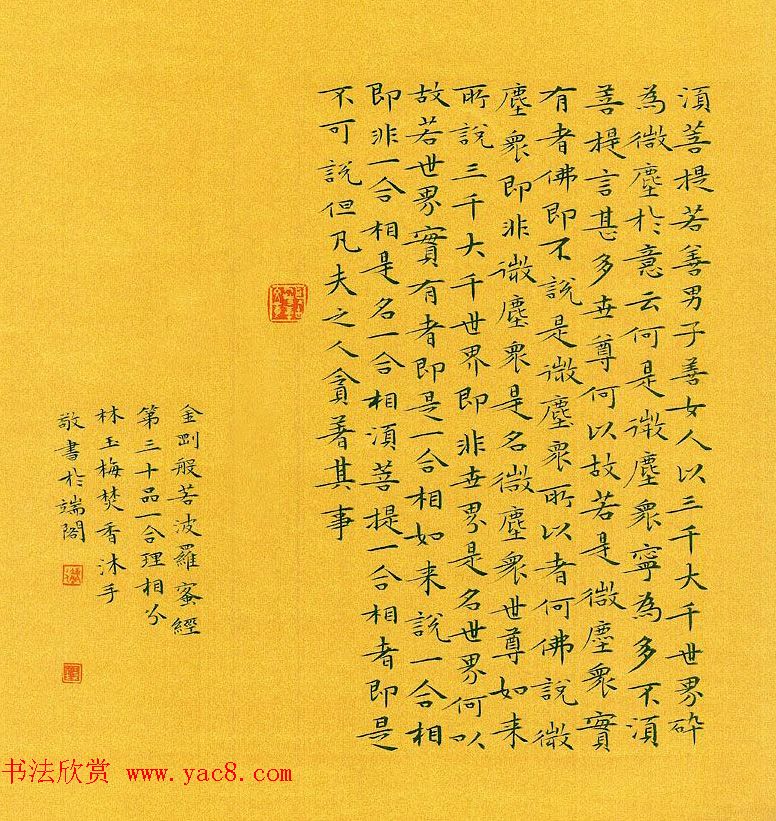 湏菩提若善男子善女人以三千大千世界碎
為微塵於意云何是微塵衆寧為多不湏
菩提言甚多世尊何以故若是微塵衆實
有者佛即不說是微塵衆所以者何佛說微
塵衆即非微塵衆是名微塵衆世尊如来
所說三千大千世界即非世界是名世界何以
故若世界實有者即是一合相如来說一合相
即非一合相是名一合相湏菩提一合相者即是
不可說但凡夫之人貪著其事
金剛般若波羅蜜經
第三十品一合理相分
林玉梅焚香沐手
敬書於端閣
书法欣赏 www.yac8.com